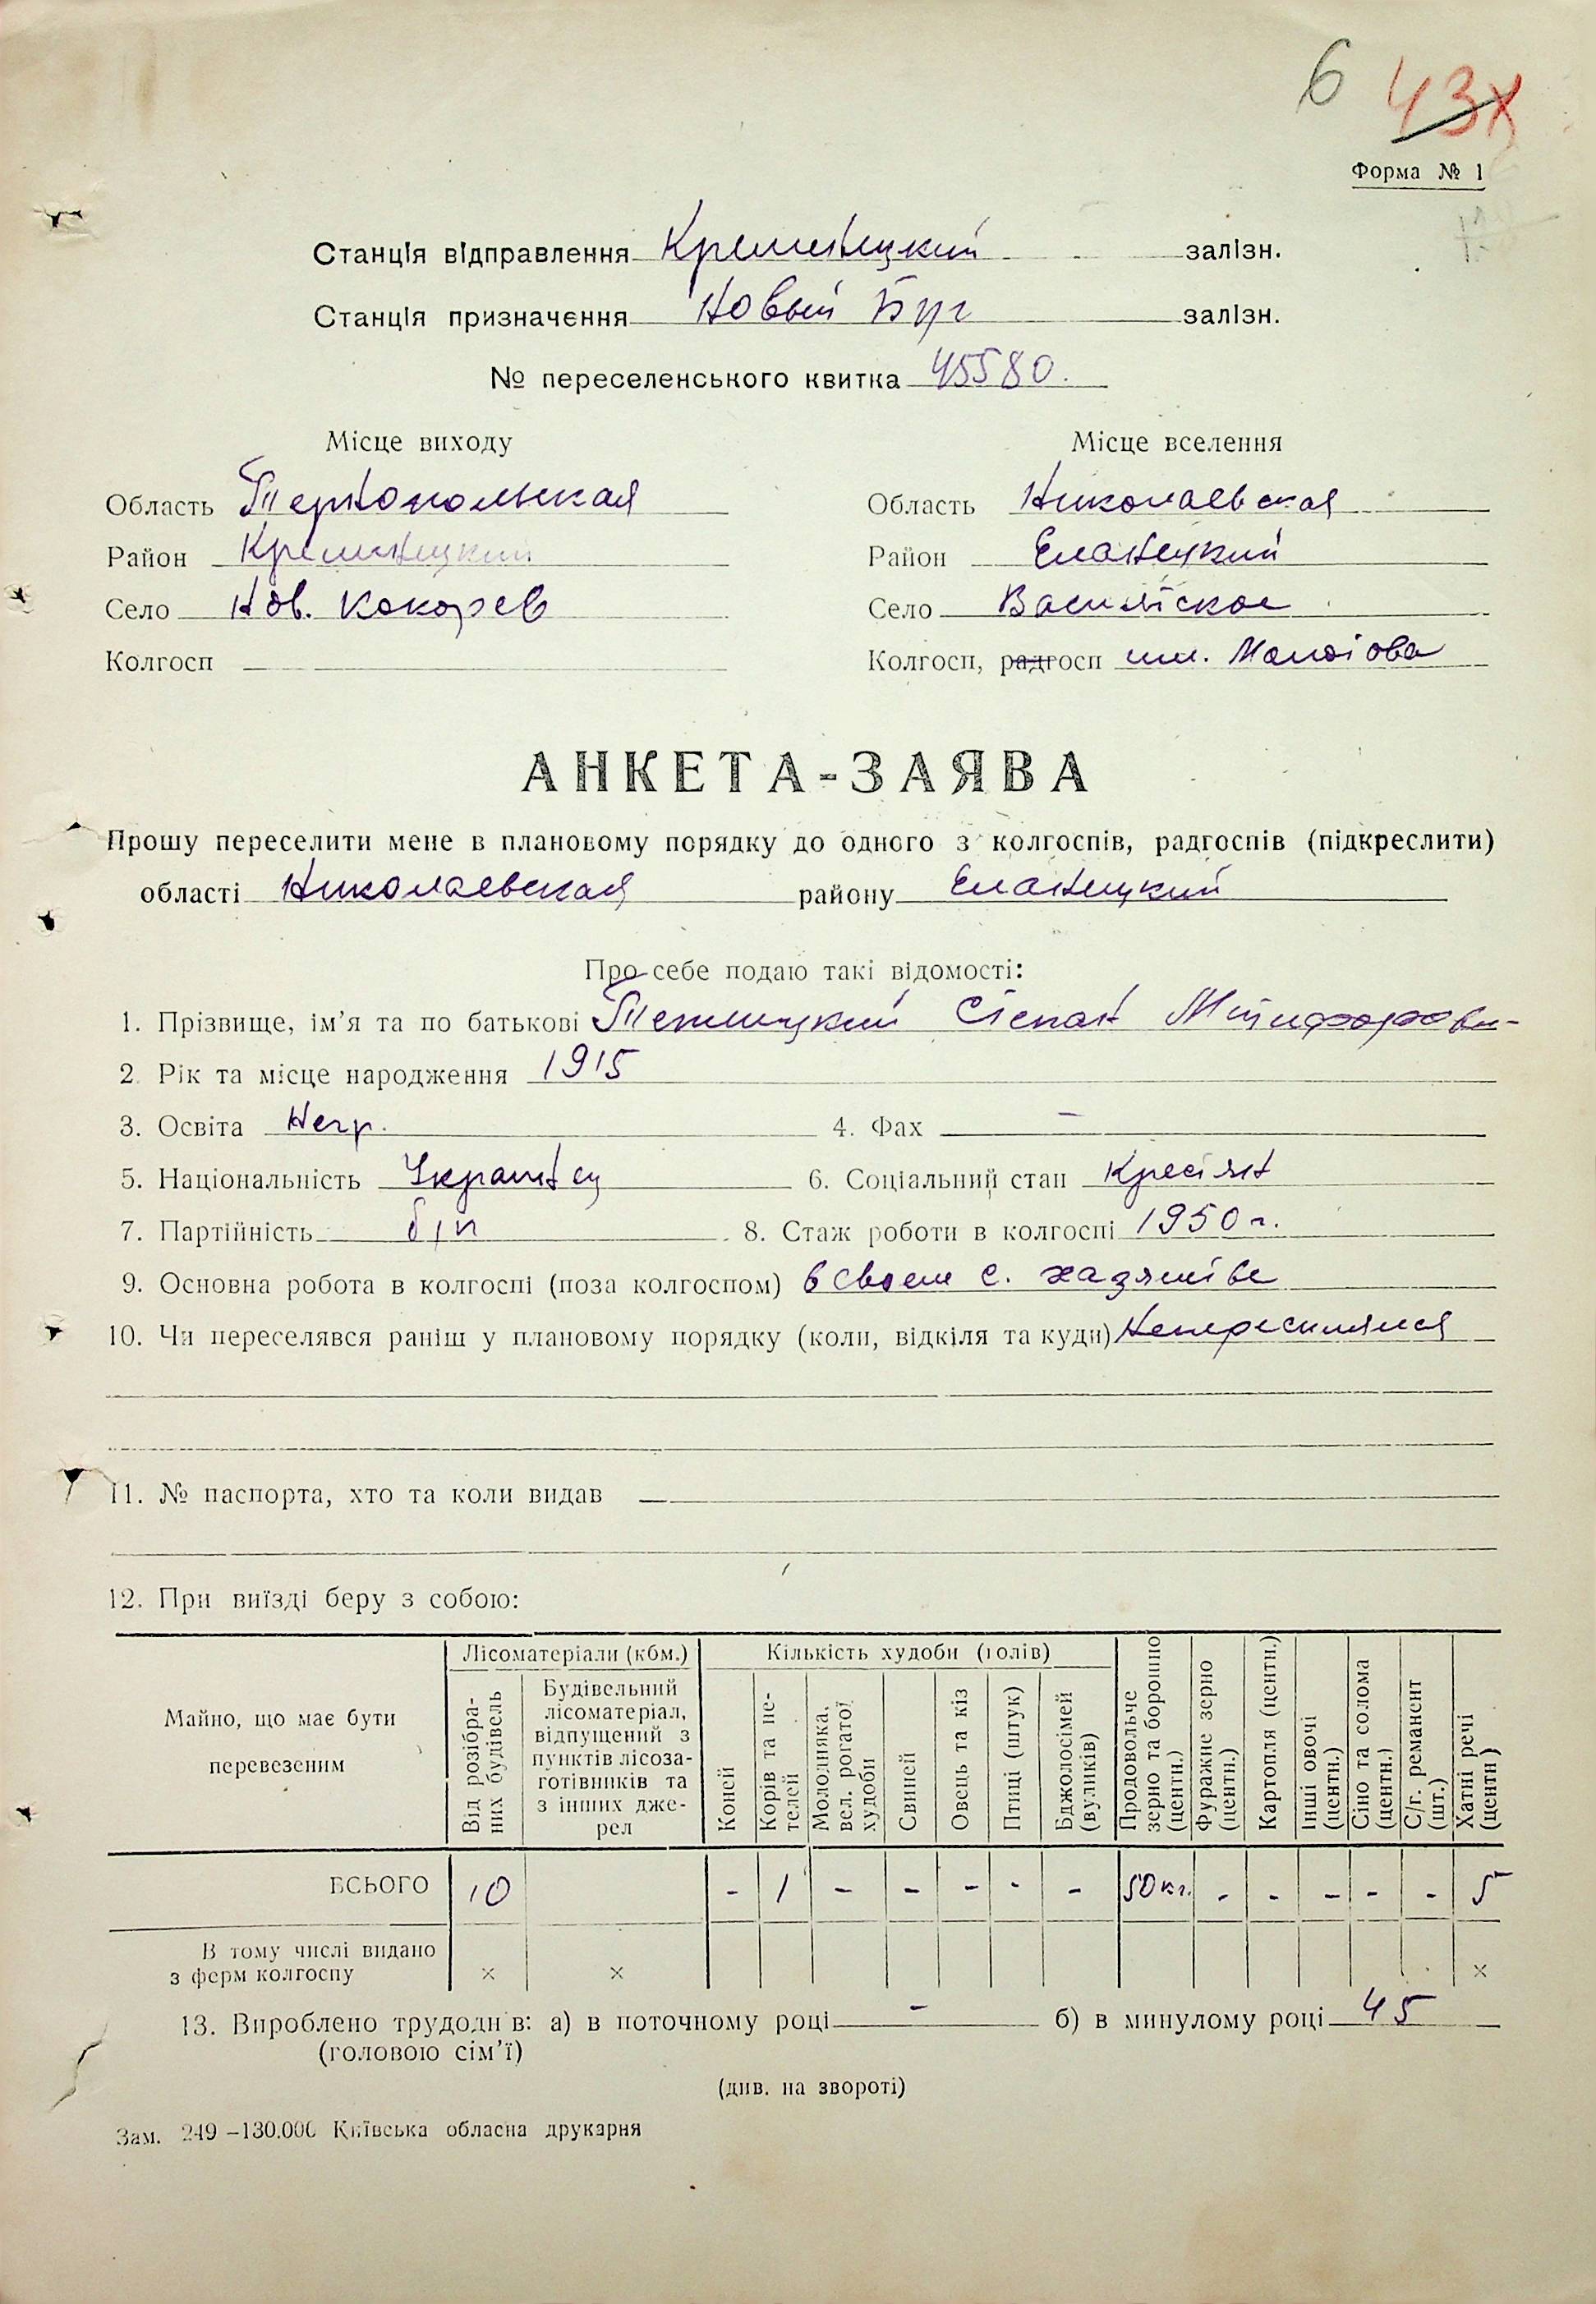 6 43
Форма № 1
Станція відправлення Кременецкий залізн.
Станція призначення Новый Буг залізн.
№ переселенського квитка 45580.
Місце виходу Місце вселення
Область Тернопольская Область Николаевская
Район Кременецкий Район Еланецкий
Село Нов. Кокорев Село
Колгосп — Колгосп, радгосп им.
АНКЕТА-ЗАЯВА
Прошу переселити мене в плановому порядку до одного з колгоспів, радгоспів (підкреслити)
області Николаевская району Еланецкий
Про себе подаю такі відомості:
1. Прізвище, ім'я та по батькові Степан
2. Рік та місце народження 1915
3. Освіта Негр. 4. Фах —
5. Національність Украинец 6. Соціальний стан Кресткян
7. Партійність б/п 8. Стаж роботи в колгоспі 1950 г.
9. Основна робота в колгоспі (поза колгоспом) в своем с. хазяистве
10. Чи переселявся раніш у плановому порядку (коли, відкіля та куди)
11. № паспорта, хто та коли видав —
12. При виїзді беру з собою:
Майно, що має бути перевезеним
Лісоматеріали (кбм.)
Від розібраних будівель
Будівельний лісоматеріал, відпущений з пунктів лісозаготівників та з інших джерел
Кількість худоби (голів)
Коней
Корів та нетелей
Молодняка, вел. рогатої худоби
Свиней
Овець та кіз
Птиці (штук)
Бджолосімей (вуликів)
Продовольче зерно та борошно (центн.)
Фуражне зерно (центн.)
Картопля (центн.)
Інші овочі (центн.)
Сіно та солома (центн.)
С/г. реманент (шт.)
Хатні речі (центн)
ВСЬОГО 10 - 1 - - - - - 50 кг. - - - - - 5
В тому числі видано
з ферм колгоспу × × ×
13. Вироблено трудоднів: а) в поточному році - б) в минулому році 45
(головою сім'ї)
(див. на звороті)
Зам. 249–130.000 Київська обласна друкарня